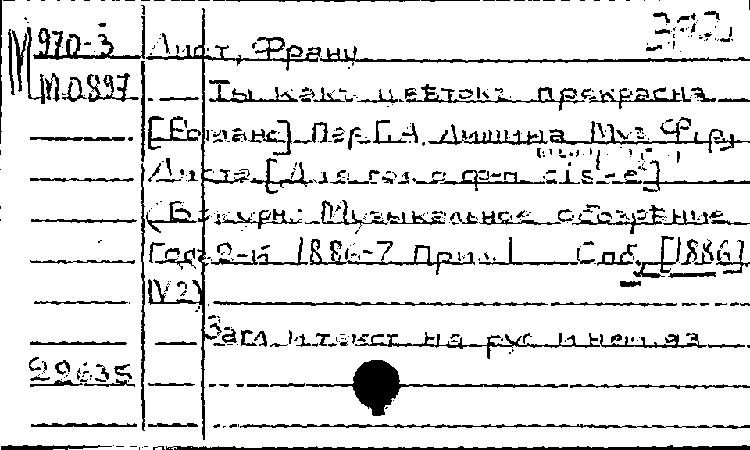 М 970-3 Лист, Франц
М 0897 Ты какъ цвѣтокъ прекрасна
[Романс] Пер. Г.А. Лишина Муз. Фр.
Листа. [Для гол. с ф-п. cis-e]
(В журн.: Музыкальное обозрѣние
Годъ 2-й 1886-7 Прил. 1 Спб, [1886]
IV 2)
Загл. и текст на рус. и нем. яз.
22635